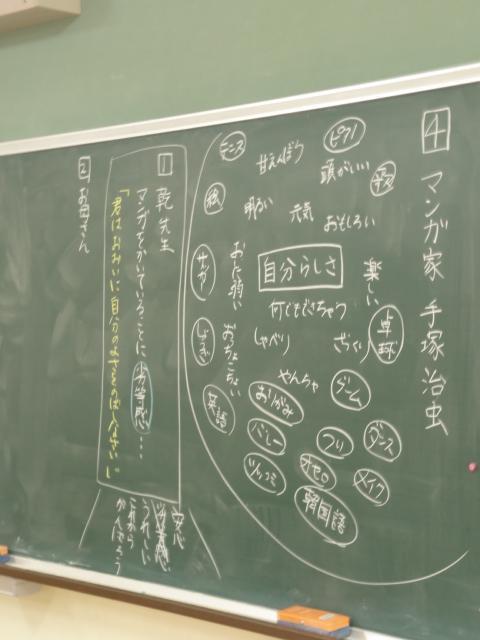 4 マンガ家 手塚治虫
テニス
甘えんぼう
ピアノ
頭がいい
絵
明るい
元気
おもしろい
自分らしさ
楽しい
サッカー
おに弱い
何でもできちゃう
卓球
しょうぎ
おっちょこちょい
しゃべり
やんちゃ
ゲーム
英語
おりがみ
バレー
つり
ダンス
ツッコミ
オセロ
メイク
韓国語
1 乾先生
マンガをかいていることに劣等感…
「君はおおいに自分のよさをのばしなさい」
安心
うれしい
これから
がんばろう
2 お母さん